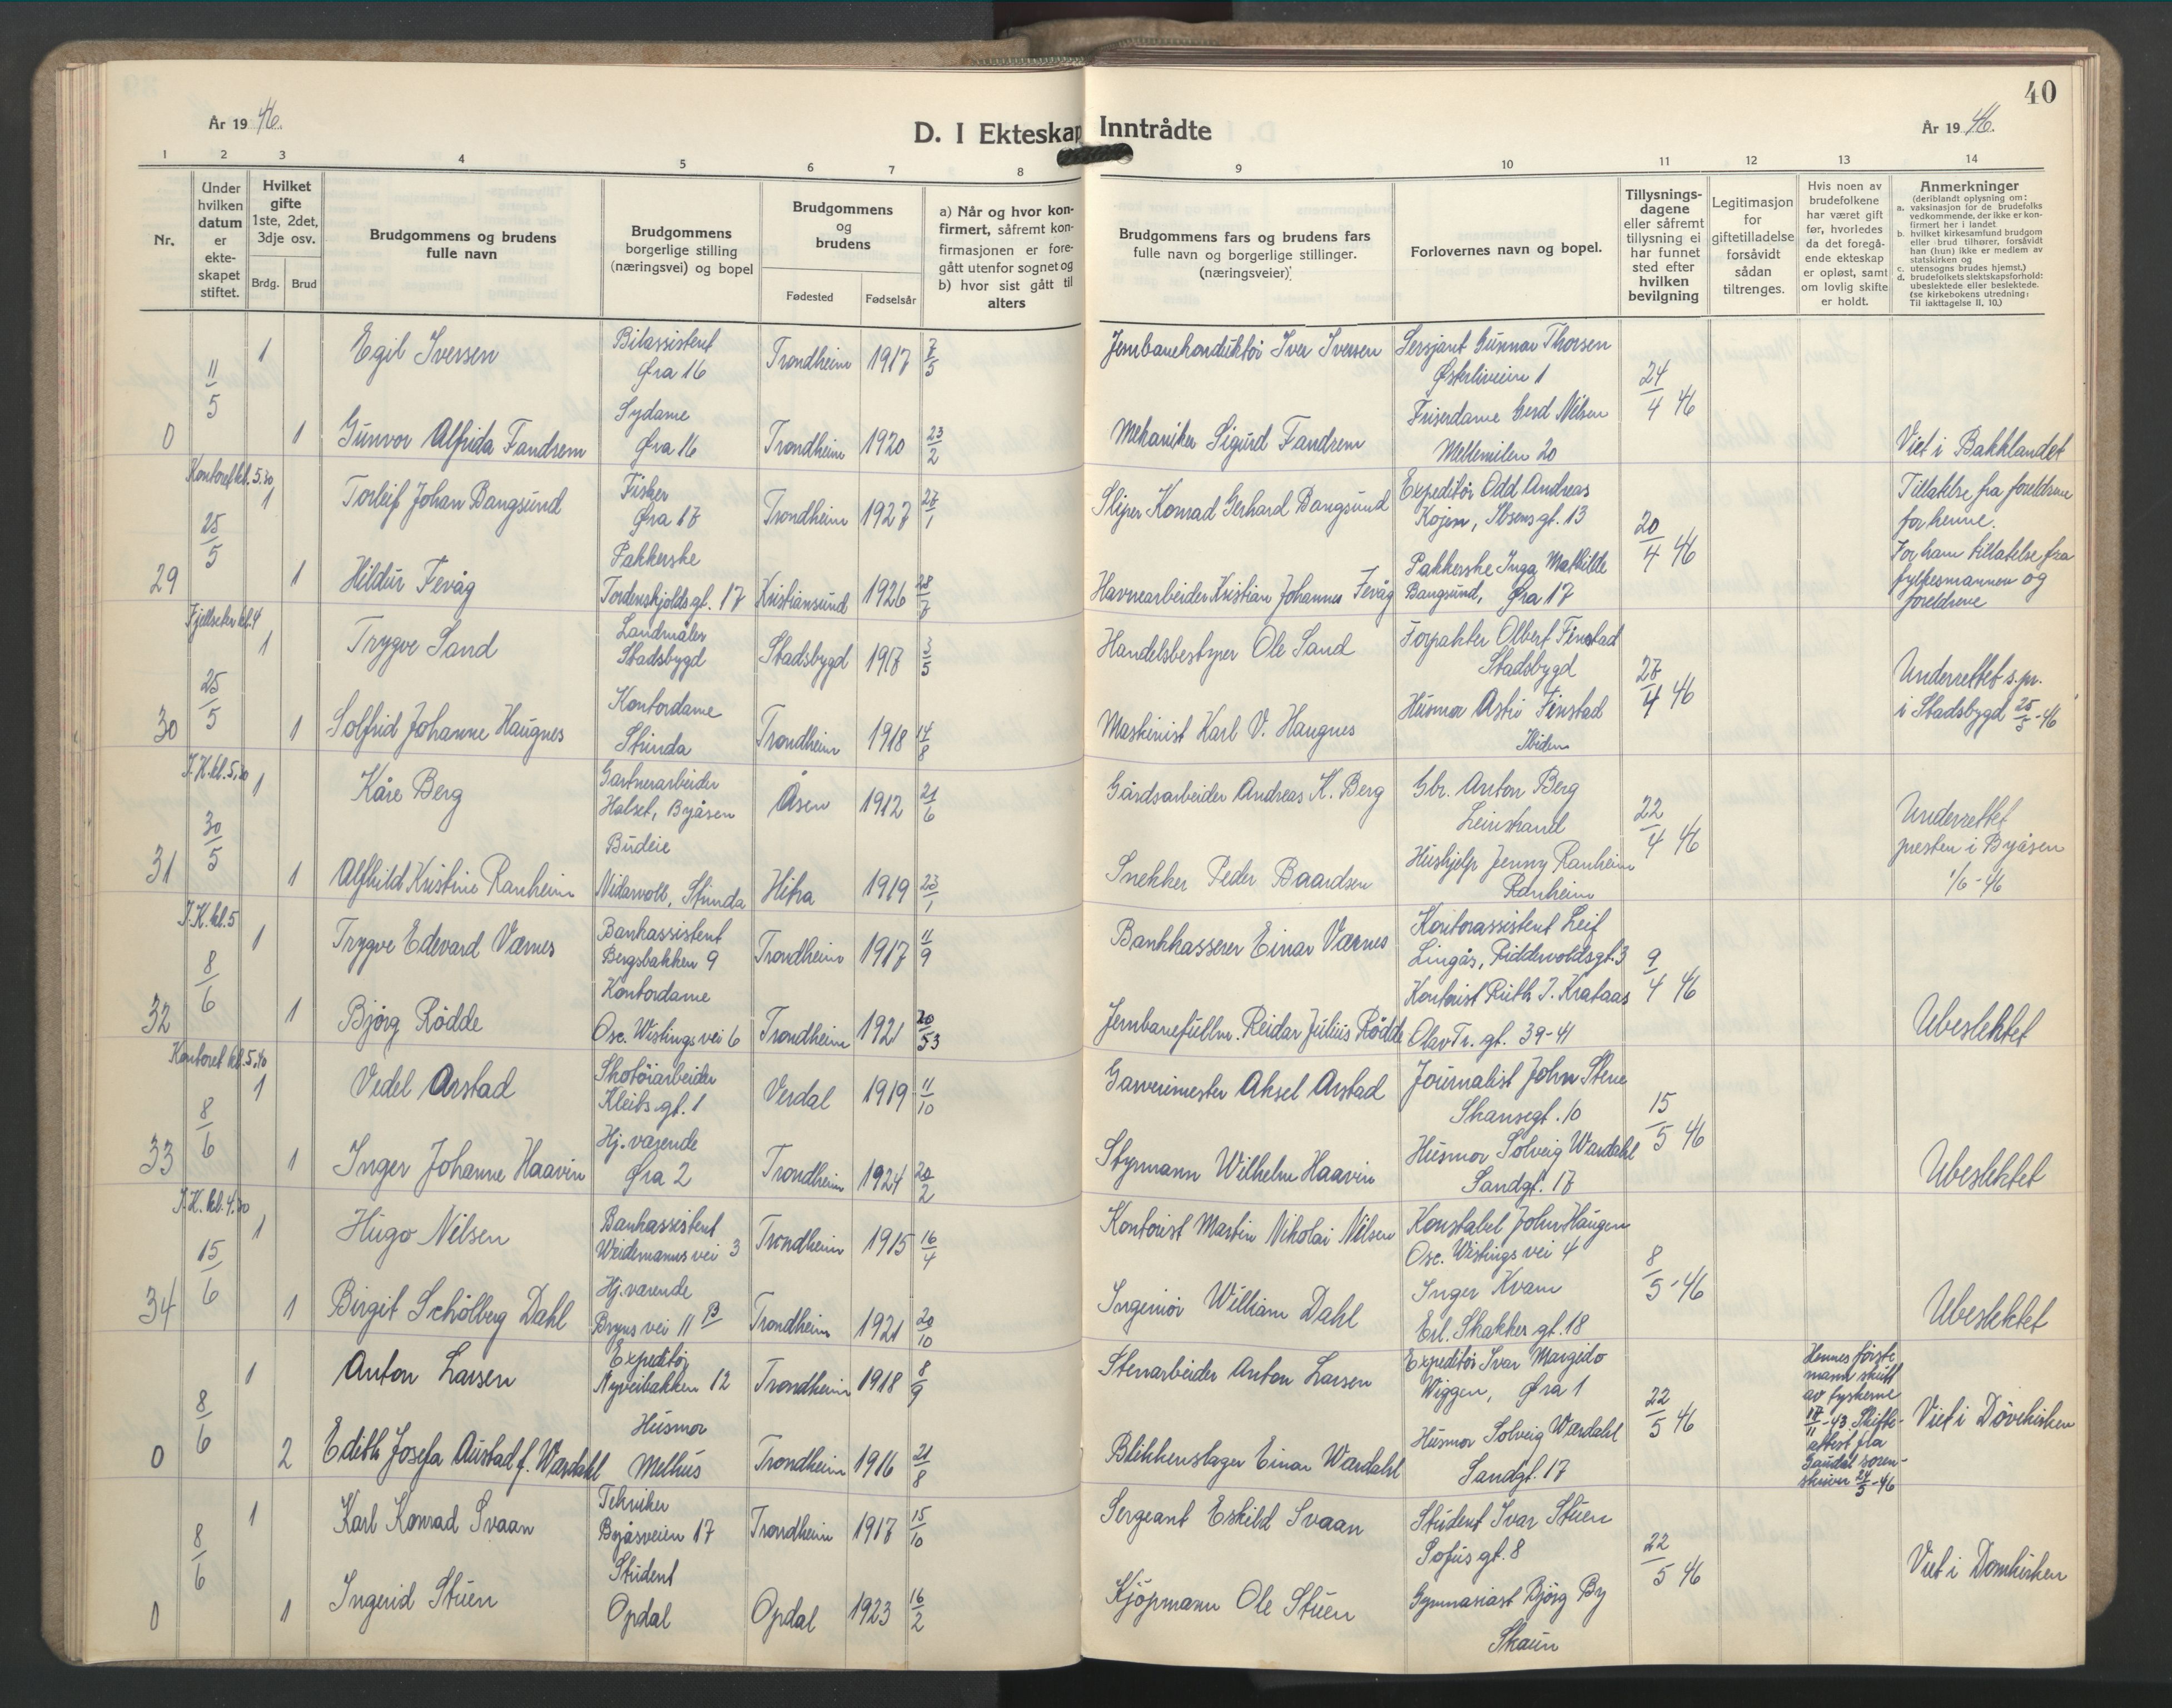 40
År 1946.
D. I Ekteskap Inntrådte
År 1946.
1 2 3 4 5 6 7 8 9 10 11 12 13 14
Nr.
Under hvilken datum er ekte-skapet stiftet.
Hvilket gifte 1ste, 2det, 3dje osv.
Brdg. Brud
Brudgommens og brudens fulle navn
Brudgommens borgerlige stilling (næringsvei) og bopel
Brudgommens og brudens
Fødested Fødselsår
a) Når og hvor kon-
firmert, såfremt kon-
firmasjonen er fore-
gått utenfor sognet og
b) hvor sist gått til
alters
Brudgommens fars og brudens fars
fulle navn og borgerlige stillinger.
(næringsveier).
Forlovernes navn og bopel.
Tillysnings-
dagene
eller såfremt
tillysning ei
har funnet
sted efter
hvilken
bevilgning
Legitimasjon
for
giftetilladelse
forsåvidt
sådan
tiltrenges.
Hvis noen av
brudefolkene
har været gift
før, hvorledes
da det foregå-
ende ekteskap
er opløst, samt
om lovlig skifte
er holdt.
Anmerkninger
(deriblandt oplysning om:
a. vaksinasjon for de brudefolks
vedkommende, der ikke er kon-
firmert her i landet
b. hvilket kirkesamfund brudgom
eller brud tilhører, forsåvidt
han (hun) ikke er medlem av
statskirken og
c. utensogns brudes hjemst.)
d. brudefolkets slektskapsforhold:
ubeslektede eller beslektede.
(se kirkebokens utredning:
Til iakttagelse II, 10.)
11/5 1 Egil Iversen Bilassistent Øra 16 Trondheim 1917 7/5 Jernbanekonduktör Iver Iversen Sersjant Gunnar Thorsen Østerliveien 1 24/4 46
0 1 Gunvor Alfrida Fandrem Sydame Øra 16 Trondheim 1920 23/2 Mekaniker Sigurd Fandrem Friserdame Gerd Nilsen Mellemilen 20 Viet i Bakklandet
Kontoret kl. 5.30
25/5 1 Torleif Johan Bangsund Fisker Øra 17 Trondheim 1927 27/1 Sliper Konrad Gerhard Bangsund Expeditör Odd Andreas Kojen, Ibsensgt. 13 20/4 46 Tillatelse fra foreldrene for henne.
29 1 Hildur Fevåg Pakkerske Tordenskjoldsgt. 17 Kristiansund 1926 28/7 Havnearbeider Kristian Johannes Fevåg Pakkerske Inga Mathilde Bangsund, Øra 17 For ham tillatelse fra fylkesmannen og foreldrene
Fjellseter kl. 4
25/5 1 Trygve Sand Landmåler Stadsbygd Stadsbygd 1917 3/5 Handelsbestyrer Ole Sand Forpakter Olbert Finstad Stadsbygd 27/4 46 Underrettet s.pr. i Stadsbygd 25/5-46
30 1 Solfrid Johanne Haugnes Kontordame Strinda Trondheim 1918 14/8 Maskinist Karl V. Haugnes Husmor Astri Finstad Ibidem
I.K. kl. 5,30
30/5 1 Kåre Berg Gartnerarbeider Halset, Byåsen Åsen 1912 21/6 Gårdsarbeider Andreas K. Berg Gbr. Anton Berg Leinstrand 22/4 46 Underrettet presten i Byåsen 1/6-46
31 1 Alfhild Kristine Ranheim Budeie Nidarvoll, Strinda Hitra 1919 23/1 Snekker Peder Baardsen Hushjelp Jenny Ranheim Ranheim
I.K. kl. 5
8/6 1 Trygve Edevard Værnes Bankassistent Bergsbakken 9 Trondheim 1917 11/9 Bankkasserer Einar Værnes Kontorassistent Leif Lingås, Riddervoldsgt. 3 9/4 46
32 1 Bjørg Rödde Kontordame Osc. Wistings vei 6 Trondheim 1921 20/53 Jernbanefullm. Reidar Julius Rödde Kontorist Ruth I. Krataas Olav Tr. gt. 39-41 Ubeslektet
Kontoret kl. 5,40
8/6 1 Vedel Arstad Skotöiarbeider Kleists gt. 1 Verdal 1919 11/10 Garverimester Aksel Arstad Journalist John Stene Skansegt. 10 15/5 46
33 1 Inger Johanne Haavin Hj.værende Øra 2 Trondheim 1924 20/2 Styrmann Wilhelm Haavin Husmor Solveig Wardahl Sandgt. 17 Ubeslektet
I.K. kl. 4.30
15/6 1 Hugo Nilsen Bankassistent Weidemanns vei 3 Trondheim 1915 16/4 Kontorist Martin Nikolai Nilsen Konstabel John Haugen Osc. Wistings vei 4 8/5-46
34 1 Birgit Schölberg Dahl Hj.værende Bryns vei 11 B Trondheim 1921 20/10 Ingeniör William Dahl Inger Kvam Erl. Skakkes gt. 18 Ubeslektet
8/6 1 Anton Larsen Expeditör Nyveibakken 12 Trondheim 1918 8/9 Stenarbeider Anton Larsen Expeditör Ivar Margido Wiggen, Øra 1 22/5 46 Hennes förste mann skutt av tyskerne 17/11-43 Skifte-attest fra Gauldal soren-skriver 24/5-46 Viet i Dövekirken
0 2 Edith Josefa Austad f. Wardahl Husmor Melhus Trondheim 1916 21/8 Blikkenslager Einar Wardahl Husmor Solveig Wardahl Sandgt. 17
8/6 1 Karl Konrad Svaan Tekniker Byåsveien 17 Trondheim 1917 15/10 Sergeant Eskild Svaan Student Ivar Stuen Sofus gt. 8 22/5 46 Viet i Domkirken
0 1 Ingerid Stuen Student Opdal Opdal 1923 16/2 Kjöpmann Ole Stuen Gymnasiast Bjørg By Skaun